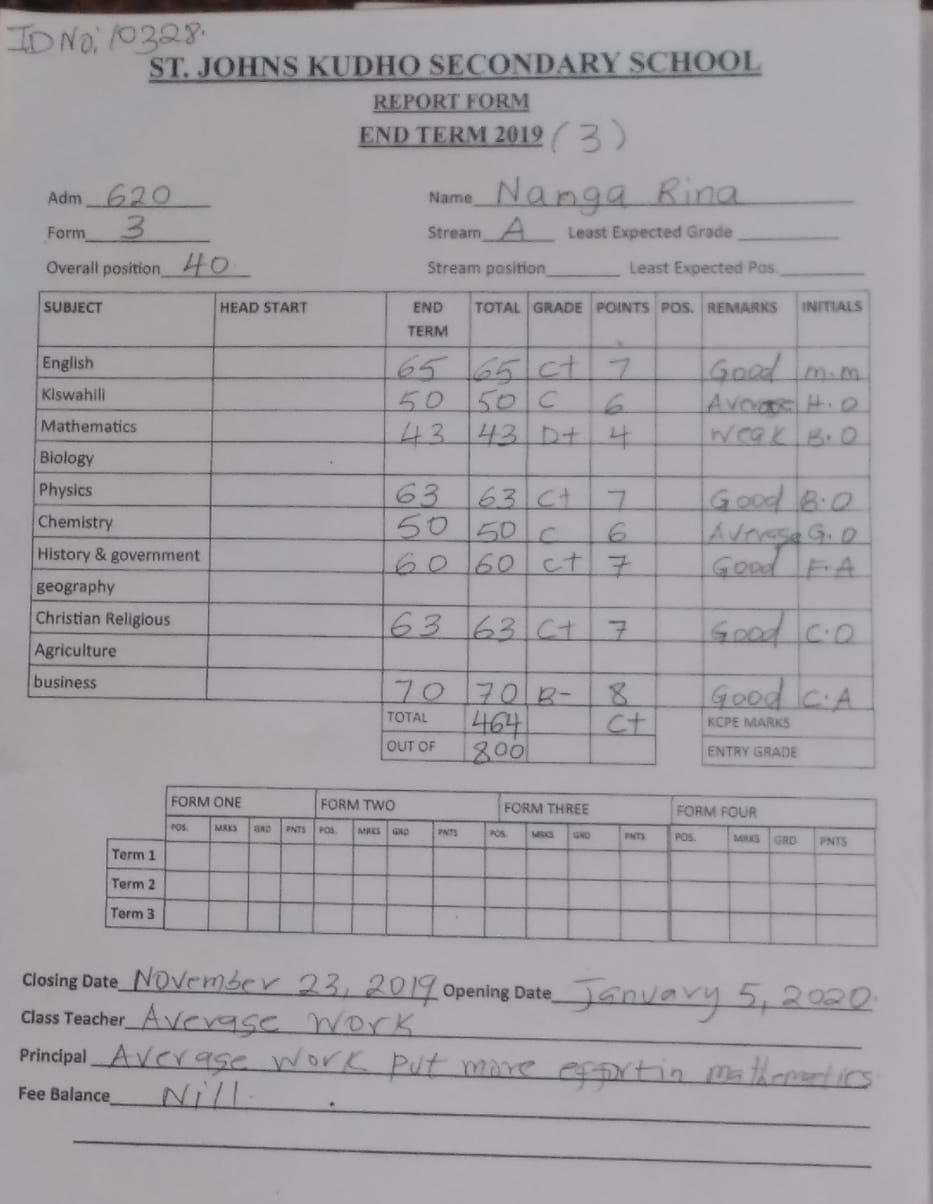 ID No: 10328.
ST. JOHNS KUDHO SECONDARY SCHOOL
REPORT FORM
END TERM 2019 (3)
Adm 620 Name Nanga Rina
Form 3 Stream A Least Expected Grade
Overall position 40 Stream position Least Expected Pos.
SUBJECT HEAD START END TERM TOTAL GRADE POINTS POS. REMARKS INITIALS
English 65 65 C+ 7 Good m.m
Kiswahili 50 50 C 6 Average H.O
Mathematics 43 43 D+ 4 Weak B.O
Biology
Physics 63 63 C+ 7 Good B.O
Chemistry 50 50 C 6 Average G.O
History & government 60 60 C+ 7 Good F.A
geography
Christian Religious 63 63 C+ 7 Good C.O
Agriculture
business 70 70 B- 8 Good C.A
TOTAL 464 C+ KCPE MARKS
OUT OF 800 ENTRY GRADE
FORM ONE FORM TWO FORM THREE FORM FOUR
POS. MRKS GRD PNTS POS. MRKS GRD PNTS POS. MRKS GRD PNTS POS. MRKS GRD PNTS
Term 1
Term 2
Term 3
Closing Date November 23, 2019 Opening Date January 5, 2020.
Class Teacher Average work
Principal Average work put more effort in mathematics
Fee Balance Nill.